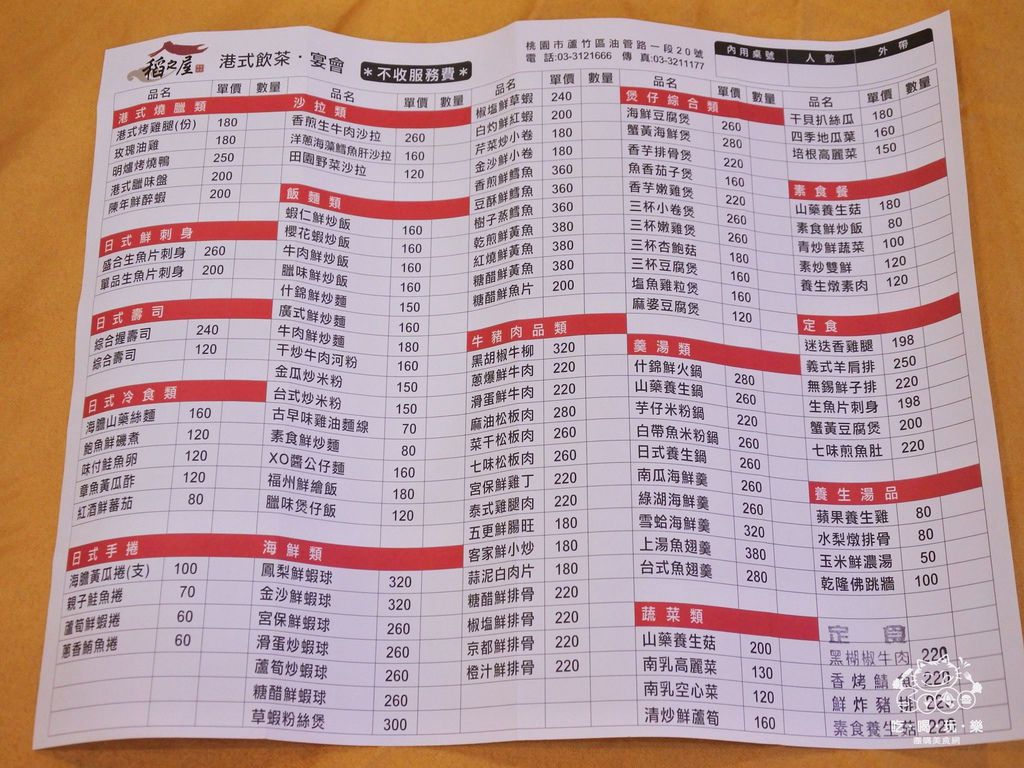 稻之屋
港式飲茶・宴會
＊不收服務費＊
桃園市蘆竹區油管路一段20號
電話:03-3121666 傳真:03-3211177
內用桌號 人數 外帶
品名 單價 數量
港式燒臘類
港式烤雞腿(份) 180
玫瑰油雞 180
明爐烤燒鴨 250
港式臘味盤 200
陳年鮮醉蝦 200
日式鮮刺身
盛合生魚片刺身 260
單品生魚片刺身 200
日式壽司
綜合握壽司 240
綜合壽司 120
日式冷食類
海膽山藥絲麵 160
鮑魚鮮磯煮 120
味付鮭魚卵 120
章魚黃瓜酢 120
紅酒鮮蕃茄 80
日式手捲
海膽黃瓜捲(支) 100
親子鮭魚捲 70
蘆筍鮮蝦捲 60
蔥香鮪魚捲 60
品名 單價 數量
沙拉類
香煎生牛肉沙拉 260
洋蔥海藻鱈魚肝沙拉 160
田園野菜沙拉 120
飯麵類
蝦仁鮮炒飯 160
櫻花蝦炒飯 160
牛肉鮮炒飯 160
臘味鮮炒飯 160
什錦鮮炒麵 150
廣式鮮炒麵 160
牛肉鮮炒麵 180
干炒牛肉河粉 160
金瓜炒米粉 150
台式炒米粉 150
古早味雞油麵線 70
素食鮮炒麵 80
XO醬公仔麵 160
福州鮮繪飯 180
臘味煲仔飯 120
海鮮類
鳳梨鮮蝦球 320
金沙鮮蝦球 320
宮保鮮蝦球 260
滑蛋炒蝦球 260
蘆筍炒蝦球 260
糖醋鮮蝦球 260
草蝦粉絲煲 300
品名 單價 數量
椒塩鮮草蝦 240
白灼鮮紅蝦 200
芹菜炒小卷 180
金沙鮮小卷 180
香煎鮮鱈魚 360
豆酥鮮鱈魚 360
樹子蒸鱈魚 360
乾煎鮮黃魚 380
紅燒鮮黃魚 380
糖醋鮮黃魚 380
糖醋鮮魚片 200
牛豬肉品類
黑胡椒牛柳 320
蔥爆鮮牛肉 220
滑蛋鮮牛肉 220
麻油松板肉 280
菜干松板肉 260
七味松板肉 260
宮保鮮雞丁 220
泰式雞腿肉 220
五更鮮腸旺 180
客家鮮小炒 180
蒜泥白肉片 180
糖醋鮮排骨 220
椒塩鮮排骨 220
京都鮮排骨 220
橙汁鮮排骨 220
品名 單價 數量
煲仔綜合類
海鮮豆腐煲 260
蟹黃海鮮煲 280
香芋排骨煲 220
魚香茄子煲 160
香芋嫩雞煲 220
三杯小卷煲 260
三杯嫩雞煲 260
三杯杏鮑菇 180
三杯豆腐煲 160
塩魚雞粒煲 160
麻婆豆腐煲 120
羹湯類
什錦鮮火鍋 280
山藥養生鍋 260
芋仔米粉鍋 220
白帶魚米粉鍋 220
日式養生鍋 260
南瓜海鮮羹 260
綠湖海鮮羹 260
雪蛤海鮮羹 320
上湯魚翅羹 380
台式魚翅羹 280
蔬菜類
山藥養生菇 200
南乳高麗菜 130
南乳空心菜 120
清炒鮮蘆筍 160
品名 單價 數量
干貝扒絲瓜 180
四季地瓜葉 160
培根高麗菜 150
素食餐
山藥養生菇 180
素食鮮炒飯 80
青炒鮮蔬菜 100
素炒雙鮮 120
養生燉素肉 120
定食
迷迭香雞腿 198
義式羊肩排 250
無錫鮮子排 220
生魚片刺身 198
蟹黃豆腐煲 200
七味煎魚肚 220
養生湯品
蘋果養生雞 80
水梨燉排骨 80
玉米鮮濃湯 50
乾隆佛跳牆 100
定食
黑楜椒牛肉 220
香烤鯖 220
鮮炸豬排
素食養生菇 220
吃・喝・玩・樂
團購美食網